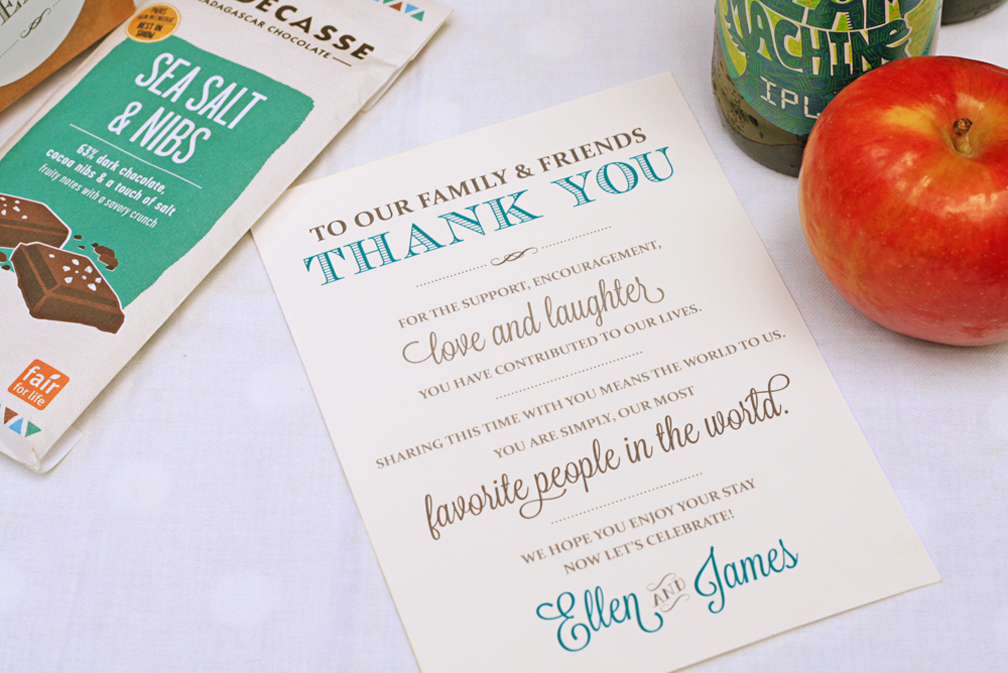 PARIS
BEST IN
SHOW
DECASSE
MADAGASCAR CHOCOLATE
SEA SALT
& NIBS
63% dark chocolate,
cocoa nibs & a touch of salt
fruity notes with a savory crunch
fair
for life
MACHINE
TO OUR FAMILY & FRIENDS
THANK YOU
FOR THE SUPPORT, ENCOURAGEMENT,
love and laughter
YOU HAVE CONTRIBUTED TO OUR LIVES.
SHARING THIS TIME WITH YOU MEANS THE WORLD TO US.
YOU ARE SIMPLY, OUR MOST
favorite people in the world.
WE HOPE YOU ENJOY YOUR STAY
NOW LET'S CELEBRATE!
Ellen AND James